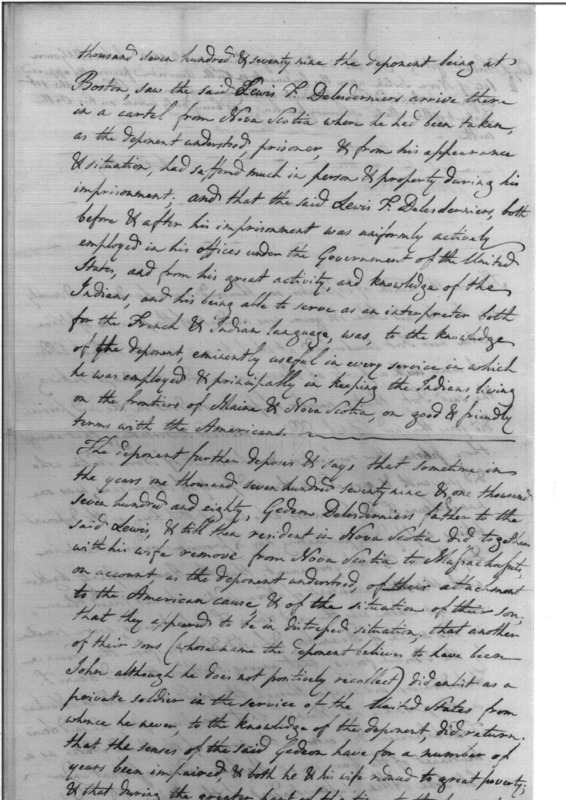 thousand seven hundred & seventy nine the deponent being at
Boston, saw the said Lewis F. Delesderniers arrive there
in a cartel from Nova Scotia where he had been taken,
as the deponent understood, prisoner, & from his appearance
& situation, had suffered much in person & property during his
imprisonment; and that the said Lewis F. Delesderniers, both
before & after his imprisonment was uniformly actively
employed in his offices under the Government of the United
States, and from his great activity, and knowledge of the
Indians, and his being able to serve as an interpreter both
for the French & Indian language, was, to the knowledge
of the deponent, eminently useful in every service in which
he was employed & principally in keeping the Indians, living
on the frontiers of Maine & Nova Scotia, on good & friendly
terms with the Americans.
The deponent further deposes & says that sometime in
the years one thousand seven hundred seventy nine & one thousand
seven hundred and eighty, Gedeon Delesderniers father to the
said Lewis, & till then resident in Nova Scotia did together
with his wife remove from Nova Scotia to Massachusetts,
on account as the deponent understood, of their attachment
to the American cause, & of the situation of their son;
that they appeared to be in distressed situation, that another
of their sons (whose name the deponent believes to have been
John although he does not positively recollect) did enlist as a
private soldier in the service of the United States from
whence he never, to the knowledge of the deponent, did return.
that the senses of the said Gedeon have for a number of
years been impaired, & both he & his wife reduced to great poverty;
& that during the greater part of the time